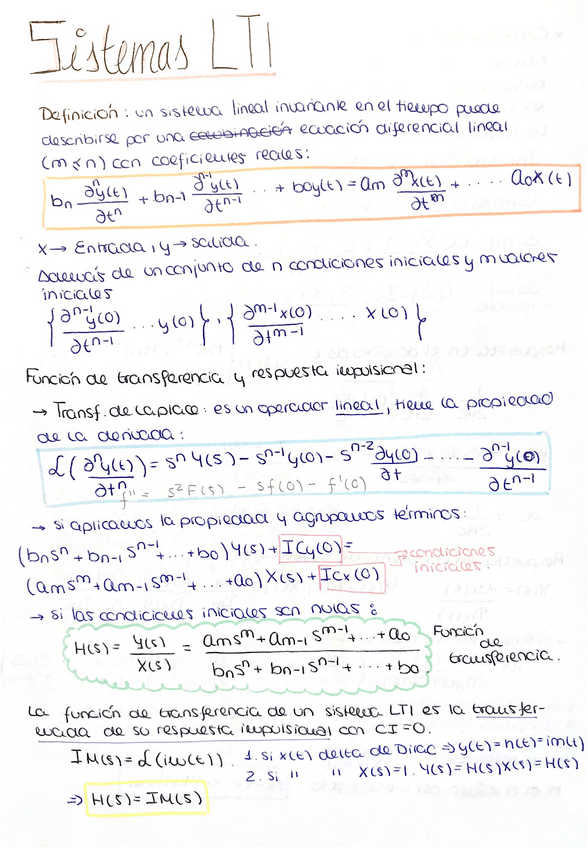 Sistemas LTI
Definición : un sistema lineal invariante en el tiempo puede
describirse por una combinación ecuación diferencial lineal
(m ≤ n) con coeficientes reales:
bn ∂ⁿy(t)/∂tⁿ + bn-1 ∂ⁿ⁻¹y(t)/∂tⁿ⁻¹ ... + boy(t) = am ∂ᵐx(t)/∂tᵐ + .... aox(t)
x → Entrada, y → salida.
Además de un conjunto de n condiciones iniciales y m valores
iniciales
{∂ⁿ⁻¹y(0)/∂tⁿ⁻¹ ... y(0)}, {∂ᵐ⁻¹x(0)/∂tᵐ⁻¹ .... x(0)}
Función de transferencia y respuesta impulsional:
→ Transf. de Laplace: es un operador lineal, tiene la propiedad
de la derivada:
ℒ(∂ⁿy(t)/∂tⁿ) = sⁿ Y(s) - sⁿ⁻¹y(0) - sⁿ⁻² ∂y(0)/∂t - ... - ∂ⁿ⁻¹y(0)/∂tⁿ⁻¹
f'' = s²F(s) - sf(0) - f'(0)
→ si aplicamos la propiedad y agrupamos términos:
(bnsⁿ + bn-1 sⁿ⁻¹ + ... + bo) Y(s) + ICy(0) =
(amsᵐ + am-1 sᵐ⁻¹ + ... + ao) X(s) + ICx(0)
→ condiciones
iniciales.
→ si las condiciones iniciales son nulas :
H(s) = Y(s)/X(s) = amsᵐ + am-1 sᵐ⁻¹ + ... + ao / bnsⁿ + bn-1 sⁿ⁻¹ + ... + bo
Función
de
transferencia.
La función de transferencia de un sistema LTI es la transfor-
mada de su respuesta impulsional con CI=0.
IM(s) = ℒ(im(t)). 1. si x(t) delta de Dirac ⇒ y(t) = h(t) = im(t)
2. si " " X(s)=1. Y(s) = H(s)X(s) = H(s)
⇒ H(s) = IM(s)